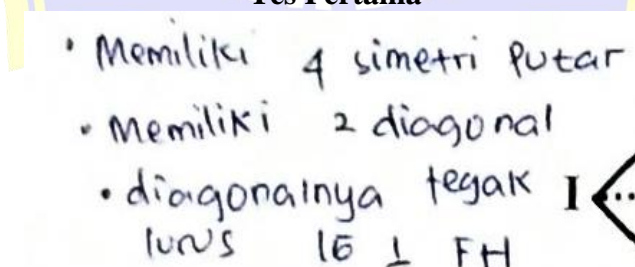 Tes Pertama
• Memiliki 4 simetri Putar
• Memiliki 2 diagonal
• diagonalnya tegak
lurus IG ⊥ FH
I